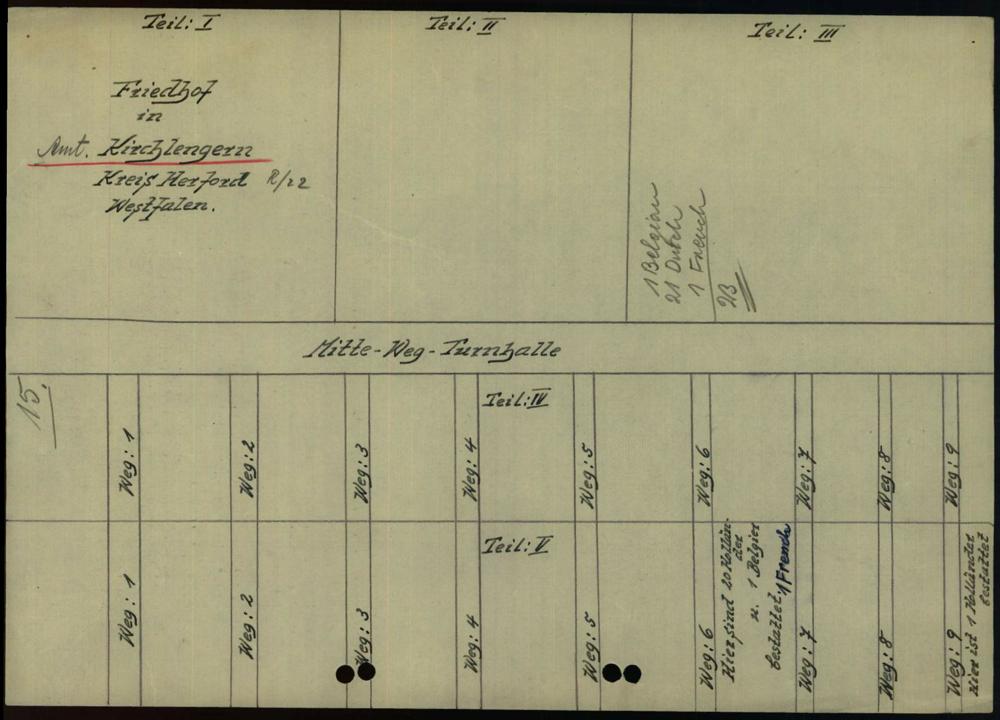 Teil: I
Friedhof
in
Amt. Kirchlengern
Kreis Herford R/22
Westfalen.
Teil: II
Teil: III
1 Belgian
21 Dutch
1 French
23
Mitte-Weg-Turnhalle
15.
Teil: IV
Weg: 1
Weg: 2
Weg: 3
Weg: 4
Weg: 5
Weg: 6
Weg: 7
Weg: 8
Weg: 9
Teil: V
Weg: 1
Weg: 2
Weg: 3
Weg: 4
Weg: 5
Weg: 6
Hier sind 20 Hollän-
der
u. 1 Belgier
bestattet, 1 French
Weg: 7
Weg: 8
Weg: 9
Hier ist 1 Holländer
bestattet